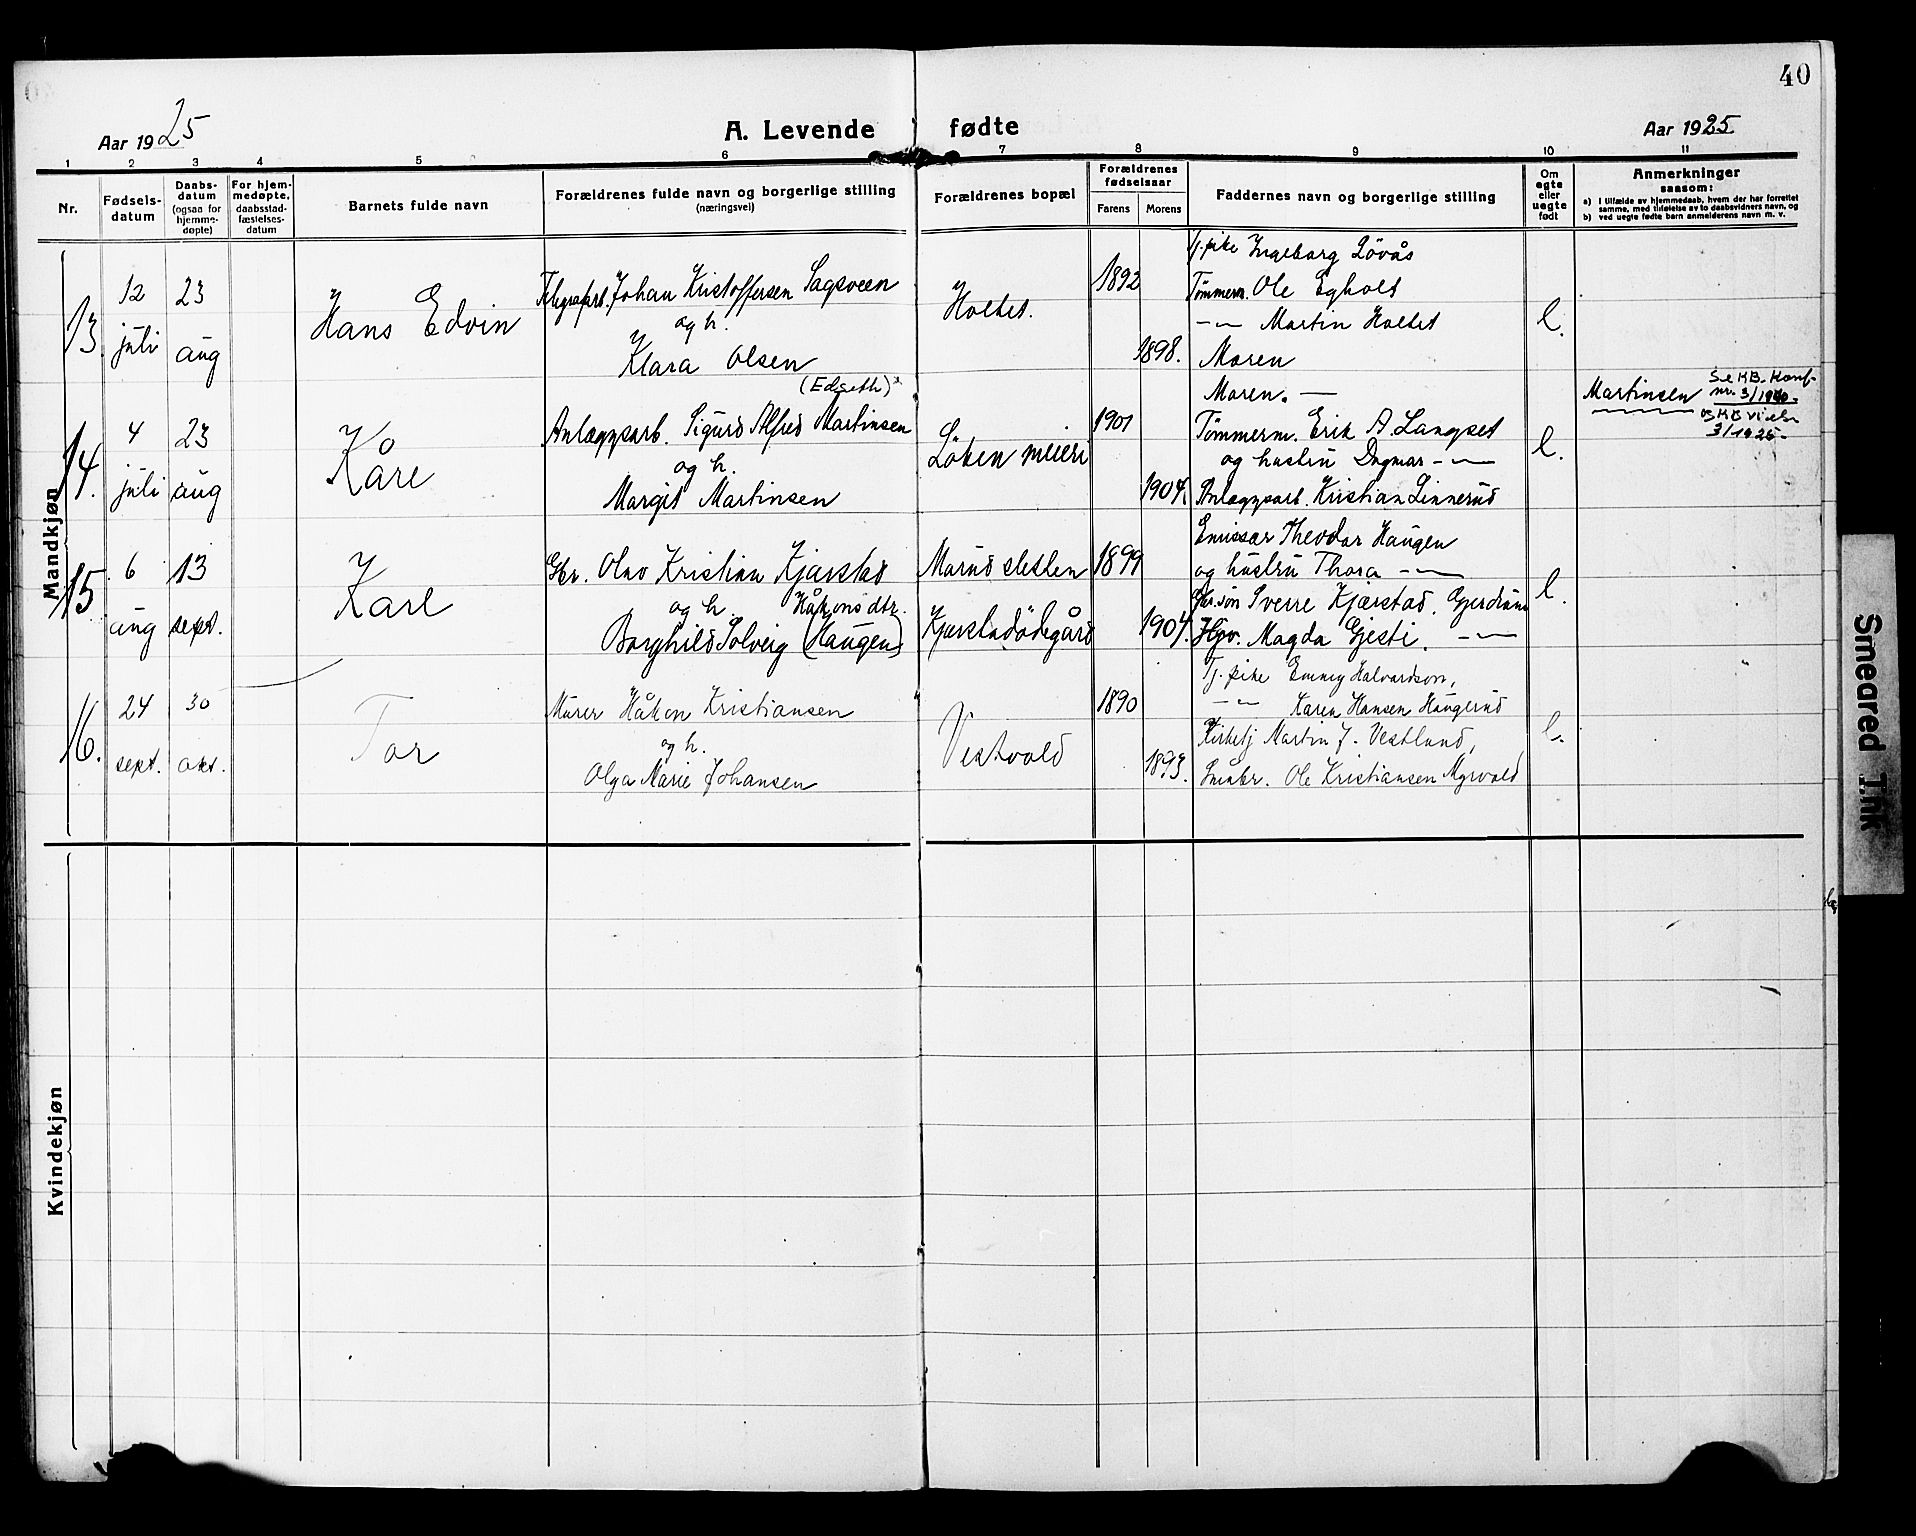 40
Aar 1925
A. Levende fødte
Aar 1925
1 2 3 4 5 6 7 8 9 10 11
Nr.
Fødsels-
datum
Daabs-
datum
(ogsaa for
hjemme-
døpte)
For hjem-
medøpte,
daabsstad-
fæstelses-
datum
Barnets fulde navn
Forældrenes fulde navn og borgerlige stilling
(næringsvei)
Forældrenes bopæl
Forældrenes
fødselsaar
Farens Morens
Faddernes navn og borgerlige stilling
Om
egte
eller
uegte
født
Anmerkninger
saasom:
a) I tilfælde av hjemmedaab, hvem der har forrettet
samme, med tilføielse av to daabsvidners navn, og
b) ved uegte fødte barn anmelderens navn m. v.
Mandkjøn
13.
12
juli
23
aug
Hans Edvin
Johan Kristoffersen Sagsveen
og h.
Klara Olsen
Holtet.
1892
1898.
Tj. pike Ingeborg Lövås
Tømmerm. Ole Egholt
-"- Martin Holtet
Moren
14.
4
juli
23
aug
Kåre
(Edseth)
Anlægsarb. Sigurd Alfred Martinsen
og h.
Margit Martinsen
Löken meieri
1901
1904.
Moren. —
Tömmerm. Erik A. Langset
og hustru Dagmar -"-
Anlægsarb. Kristian Linnerud
Martinsen
Se KB. Konf-
nr. 3/1940.
og KB Vielse
3/1925.
15
6
aug
13
sept.
Kåre
Gbr. Olav Kristian Kjærstad
og h. Håkonsdtr.
Borghild Solveig (Haugen)
Marud sletten
Kjærstadödegård
1899
1904.
Emissær Theodor Haugen
og hustru Thora -"-
Gbr. sön Sverre Kjærstad, Gjerdrum
Magda Gjesti. -"-
16.
24
sept.
30
okt.
Tor
Murer Håkon Kristiansen
og h.
Olga Marie Johansen
Vestvold
1890
1893.
Tj. pike Emmy Halvardson,
-"- Karen Hansen Haugerud
Kirketj Martin J. Vestlund,
Småbr. Ole Kristiansen Myrvold
Kvindekjøn
Smeared Ink